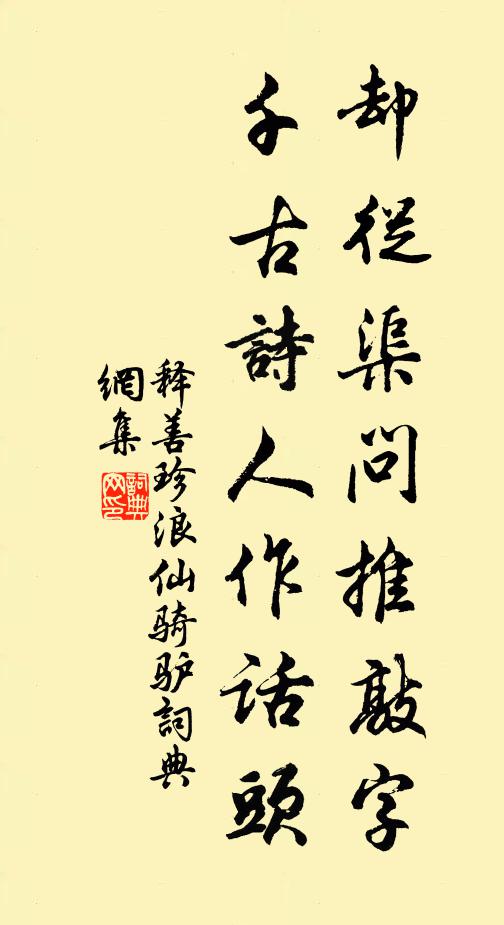 却從渠問推敲字
千古詩人作話頭
释善珍浪仙骑驴詞典
網集
詞典网印